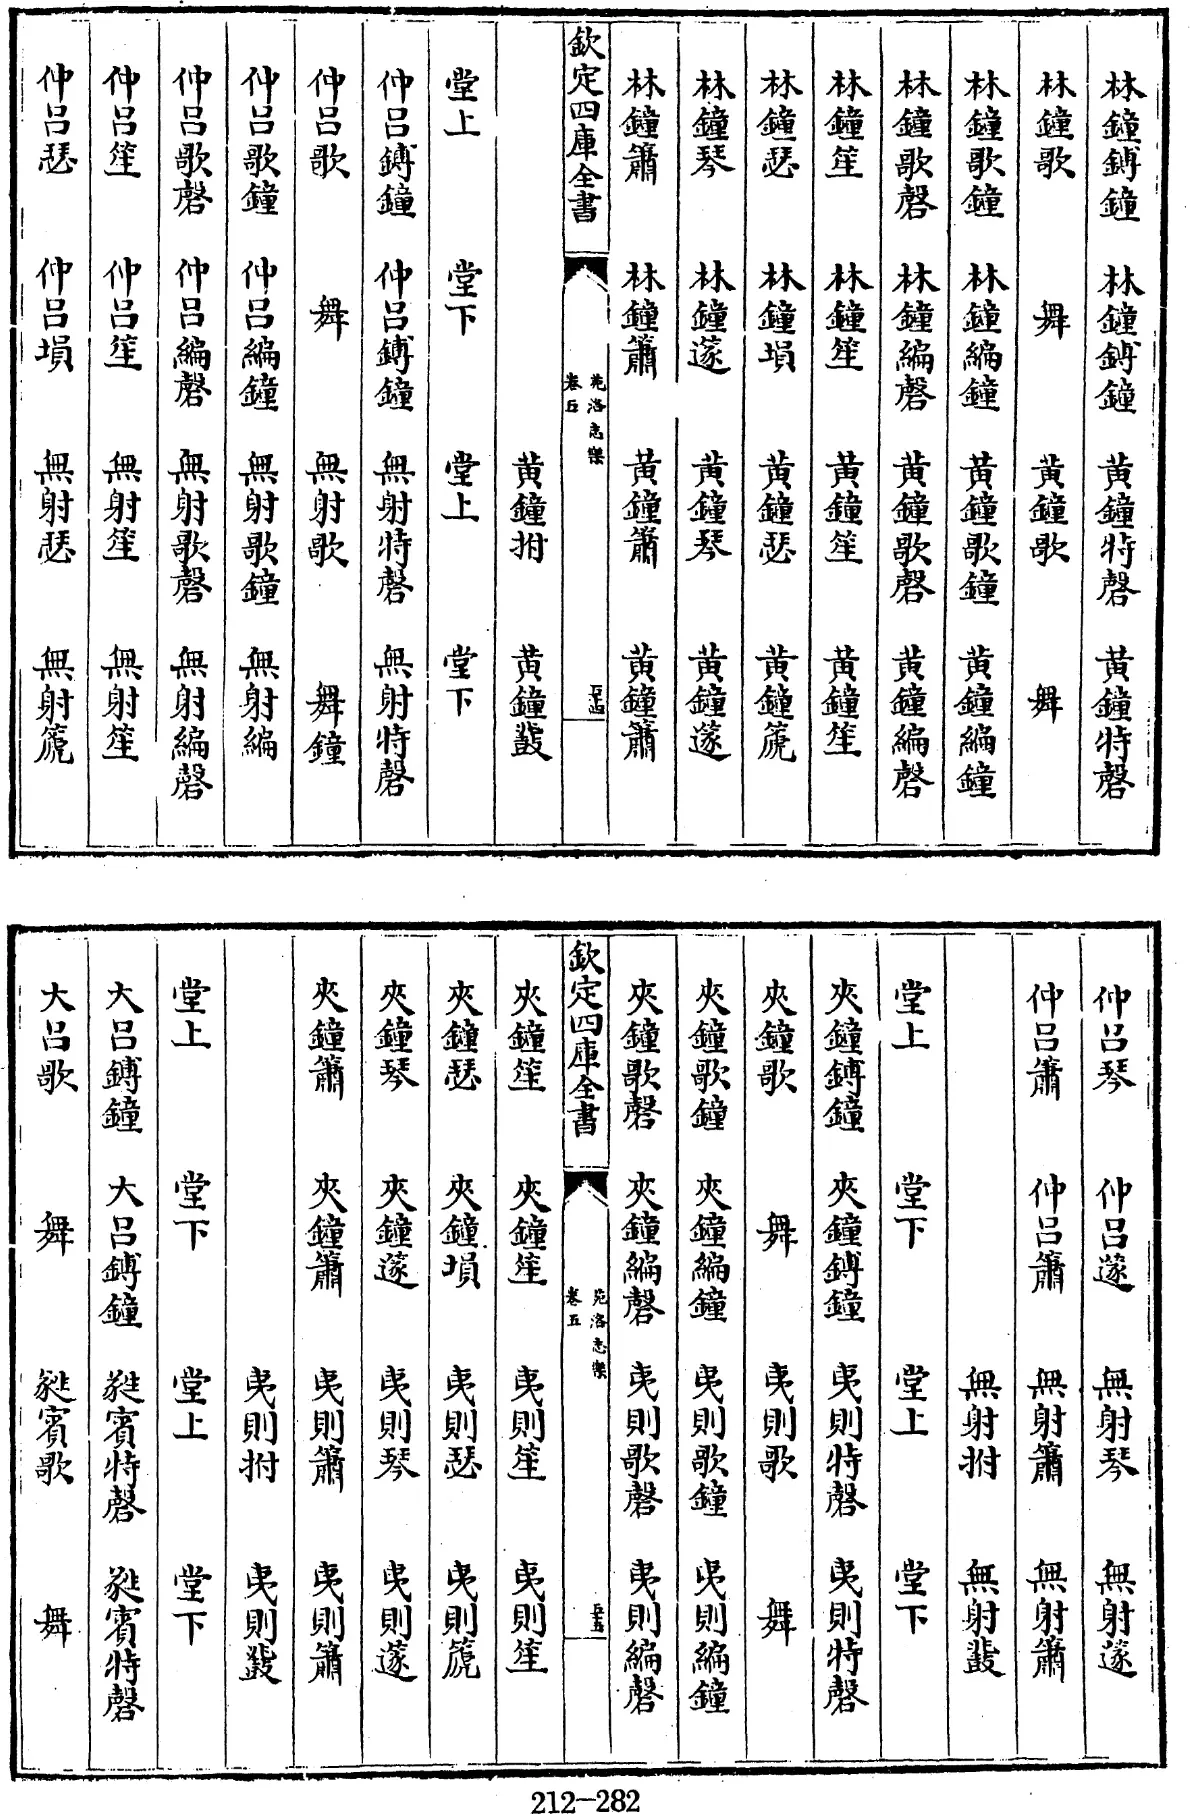 林鐘鎛鐘　林鐘鎛鐘　黃鐘特磬　黃鐘特磬
林鐘歌　舞　黃鐘歌　舞
林鐘歌鐘　林鐘編鐘　黃鐘歌鐘　黃鐘編鐘
林鐘歌磬　林鐘編磬　黃鐘歌磬　黃鐘編磬
林鐘笙　林鐘笙　黃鐘笙　黃鐘笙
林鐘瑟　林鐘塤　黃鐘瑟　黃鐘箎
林鐘琴　林鐘篴　黃鐘琴　黃鐘篴
林鐘簫　林鐘簫　黃鐘簫　黃鐘簫
欽定四庫全書
苑洛志樂
卷五
黃鐘拊　黃鐘鼗
堂上　堂下　堂上　堂下
仲呂鎛鐘　仲呂鎛鐘　無射特磬　無射特磬
仲呂歌　舞　無射歌　舞鐘
仲呂歌鐘　仲呂編鐘　無射歌鐘　無射編
仲呂歌磬　仲呂編磬　無射歌磬　無射編磬
仲呂笙　仲呂笙　無射笙　無射笙
仲呂瑟　仲呂塤　無射瑟　無射箎
仲呂琴　仲呂篴　無射琴　無射篴
仲呂簫　仲呂簫　無射簫　無射簫
無射拊　無射鼗
堂上　堂下　堂上　堂下
夾鐘鎛鐘　夾鐘鎛鐘　夷則特磬　夷則特磬
夾鐘歌　舞　夷則歌　舞
夾鐘歌鐘　夾鐘編鐘　夷則歌鐘　夷則編鐘
夾鐘歌磬　夾鐘編磬　夷則歌磬　夷則編磬
欽定四庫全書
苑洛志樂
卷五
夾鐘笙　夾鐘笙　夷則笙　夷則笙
夾鐘瑟　夾鐘塤　夷則瑟　夷則箎
夾鐘琴　夾鐘篴　夷則琴　夷則篴
夾鐘簫　夾鐘簫　夷則簫　夷則簫
夷則拊　夷則鼗
堂上　堂下　堂上　堂下
大呂鎛鐘　大呂鎛鐘　蕤賓特磬　蕤賓特磬
大呂歌　舞　蕤賓歌　舞
212-282